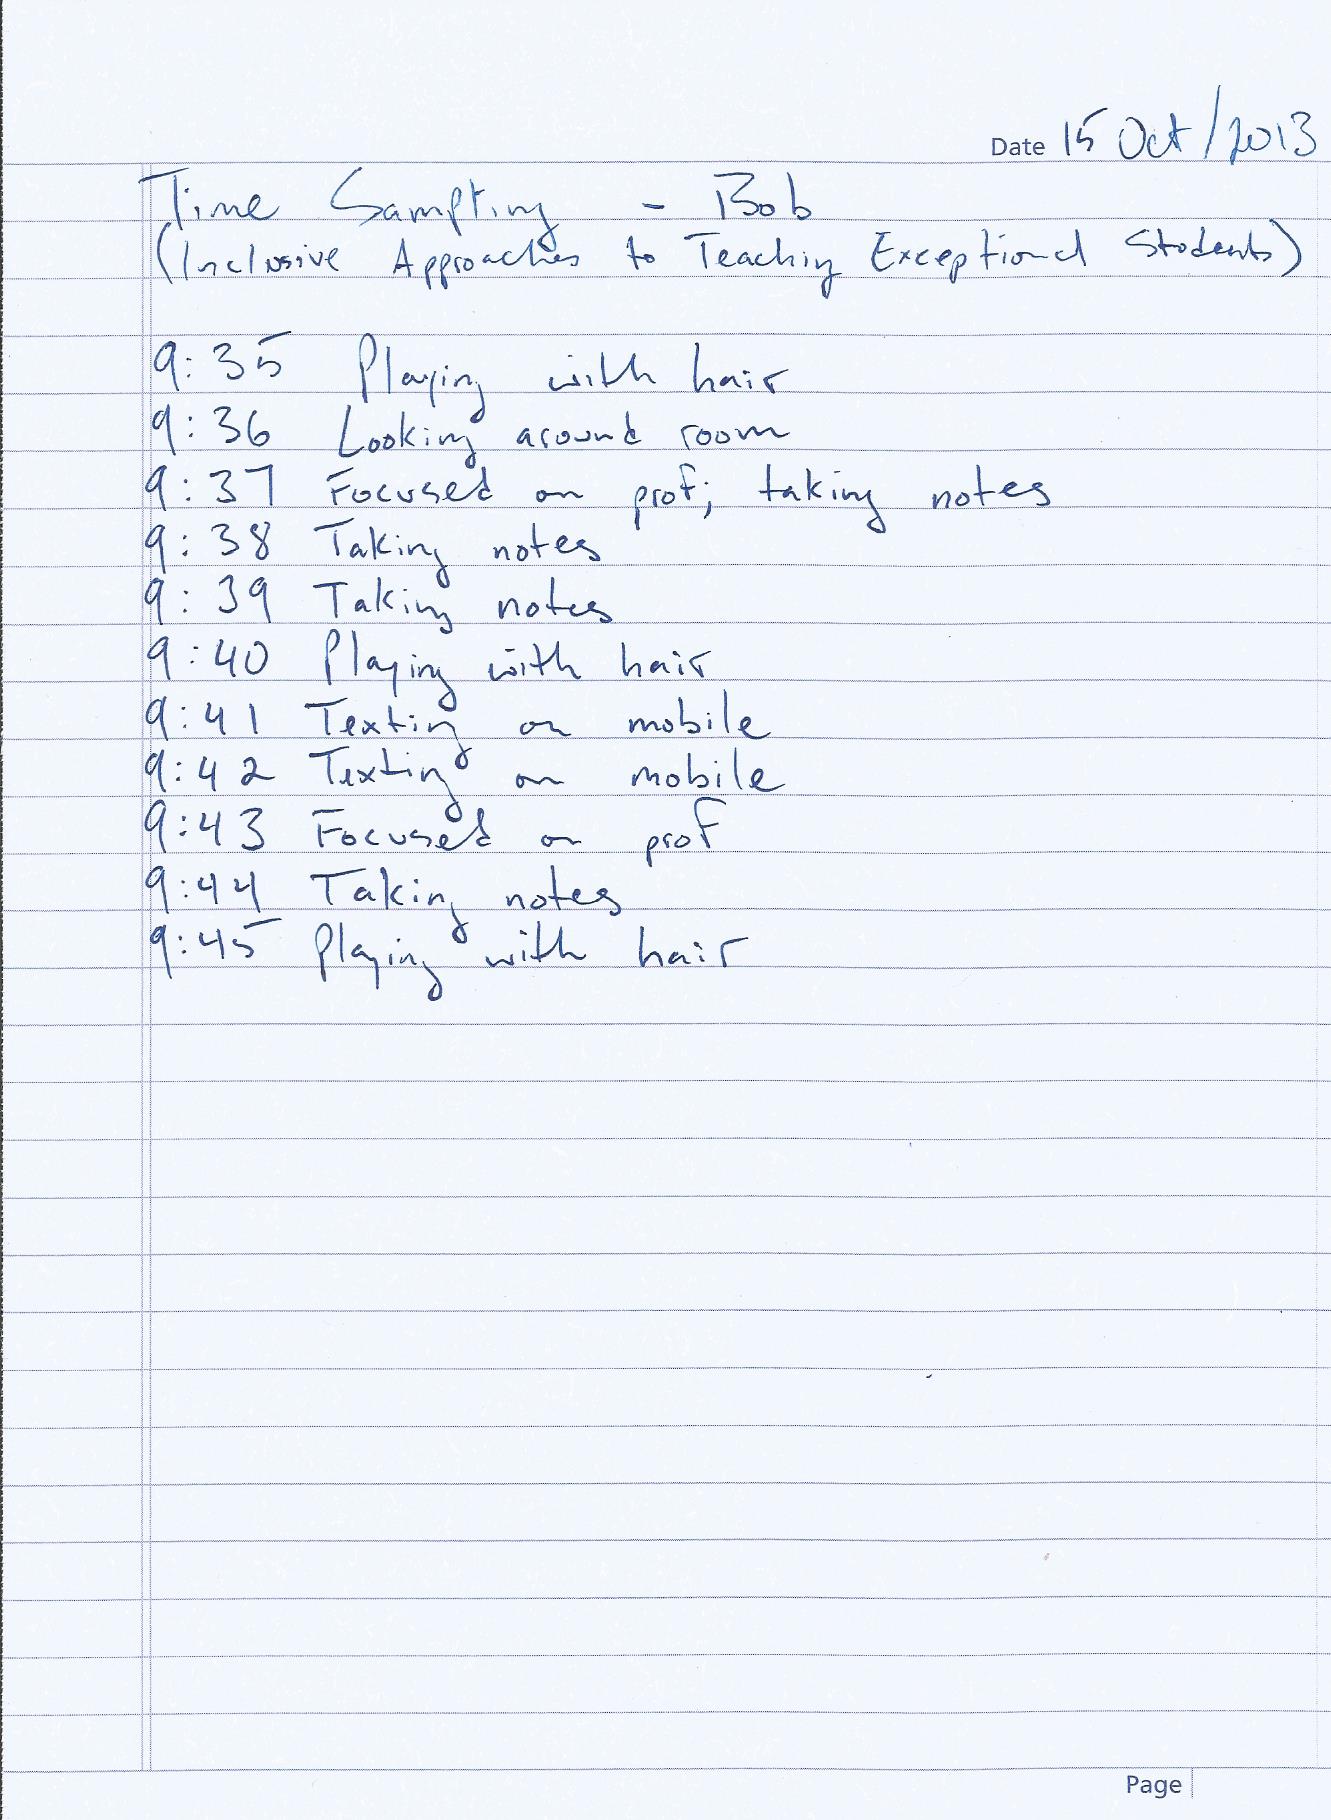 Date 15 Oct/2013
Time Sampling - Bob
(Inclusive Approaches to Teaching Exceptional Students)
9:35 Playing with hair
9:36 Looking around room
9:37 Focused on prof; taking notes
9:38 Taking notes
9:39 Taking notes
9:40 Playing with hair
9:41 Texting on mobile
9:42 Texting on mobile
9:43 Focused on prof
9:44 Taking notes
9:45 Playing with hair
Page